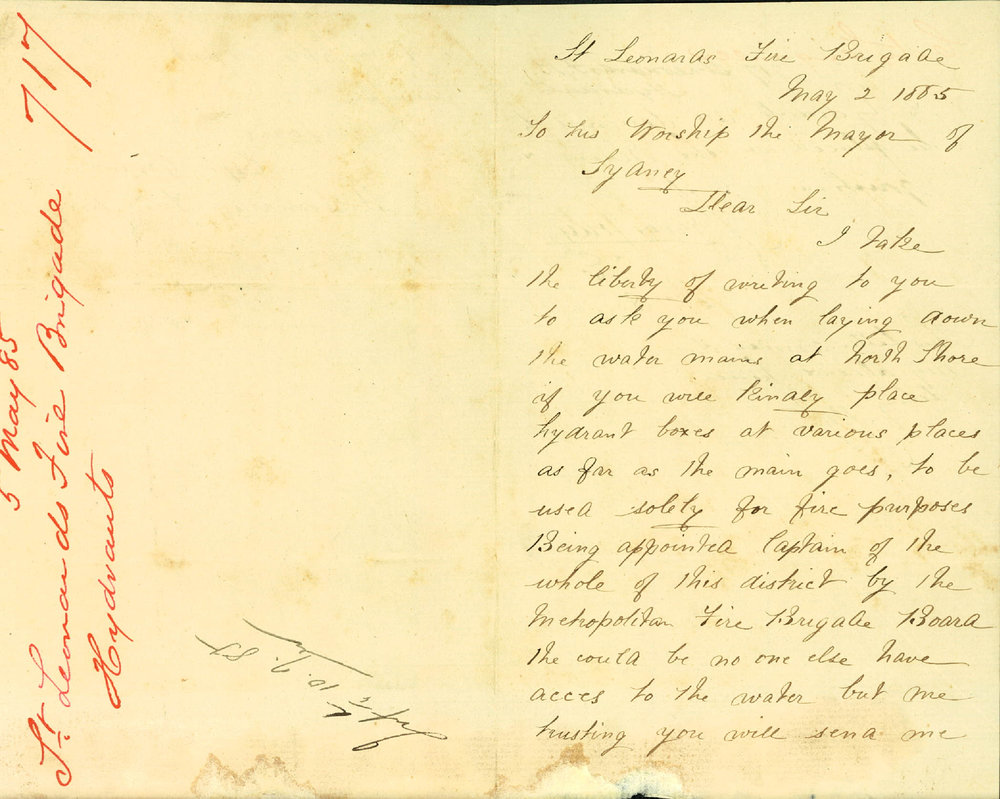 717
5 May 85
St. Leonards Fire Brigade
Hydrants
St Leonards Fire Brigade
May 2 1885
To his Worship the Mayor of
Sydney
Dear Sir
I take
the liberty of writing to you
to ask you when laying down
the water mains at North Shore
if you will kindly place
hydrant boxes at various places
as far as the main goes, to be
used solely for fire purposes
Being appointed Captain of the
whole of this district by the
Metropolitan Fire Brigade Board
the could be no one else have
acces to the water but me
trusting you will send me